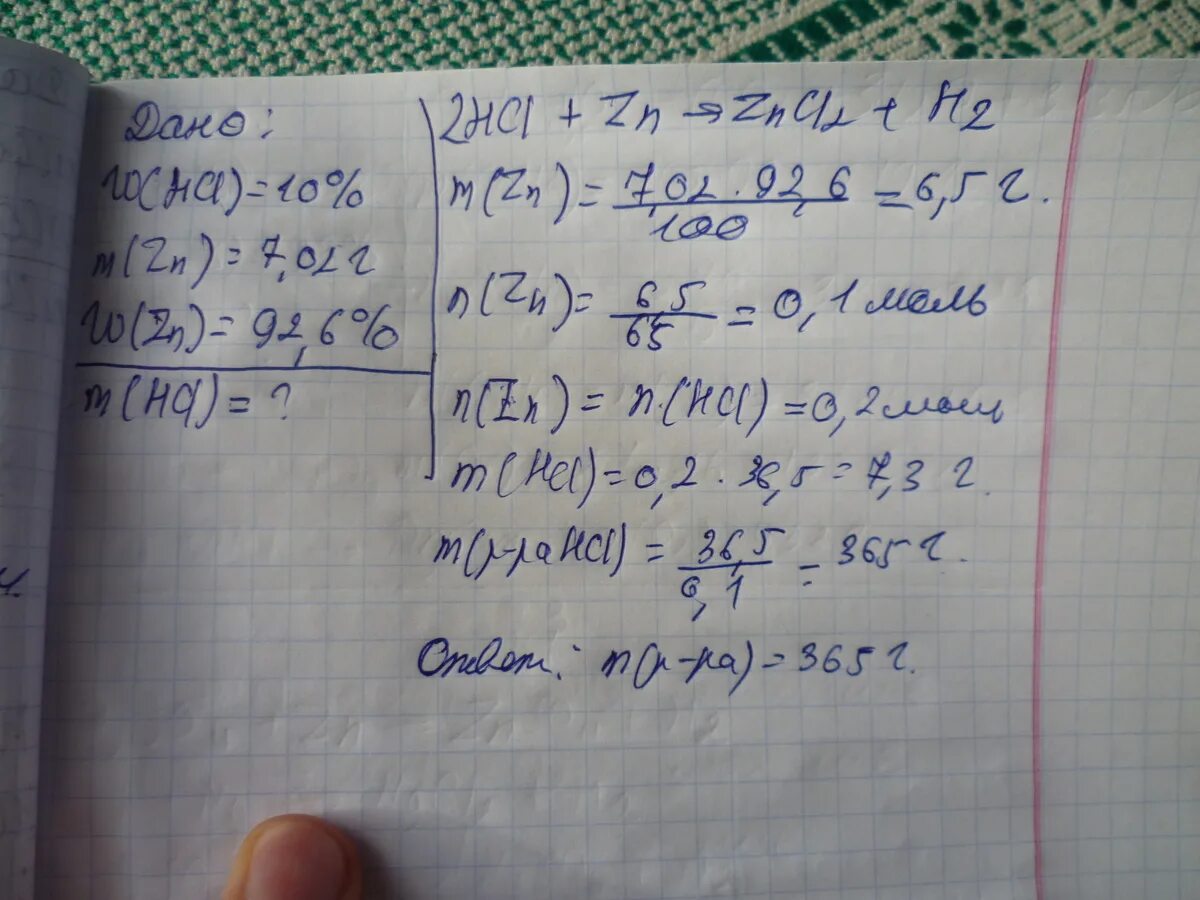 Дано:
W(HCl) = 10%
m(Zn) = 7,02 г
W(Zn) = 92,6%
m(HCl) = ?
2HCl + Zn → ZnCl2 + H2
m(Zn) = 7,02 · 92,6 / 100 = 6,5 г.
n(Zn) = 6,5 / 65 = 0,1 моль
n(Zn) = n·(HCl) = 0,2 моль
m(HCl) = 0,2 · 36,5 = 7,3 г.
m(р-ра HCl) = 36,5 / 0,1 = 365 г.
Ответ: m(р-ра) = 365 г.